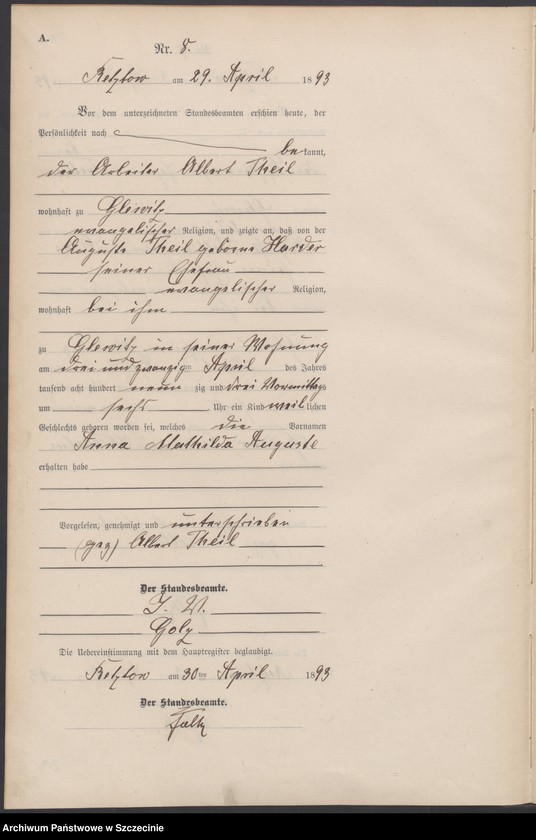 A.
Nr. 8.
Retztow am 29. April 1893
Vor dem unterzeichneten Standesbeamten erschien heute, der
Persönlichkeit nach
bekannt,
der Arbeiter Albert Theil
wohnhaft zu Glewitz
evangelischer Religion, und zeigte an, daß von der
Auguste Theil geborne Harder
seiner Ehefrau
evangelischer Religion,
wohnhaft bei ihm
zu Glewitz in seiner Wohnung
am drei und zwanzigten April des Jahres
tausend acht hundert neunzig und drei Vormittags
um sechs Uhr ein Kind weiblichen
Geschlechts geboren worden sei, welches die Vornamen
Anna Mathilda Auguste
erhalten habe
Vorgelesen, genehmigt und unterschrieben
(gez) Albert Theil
Der Standesbeamte.
I. V.
Golz
Die Uebereinstimmung mit dem Hauptregister beglaubigt.
Retztow am 30ten April 1893
Der Standesbeamte.
Archiwum Państwowe w Szczecinie